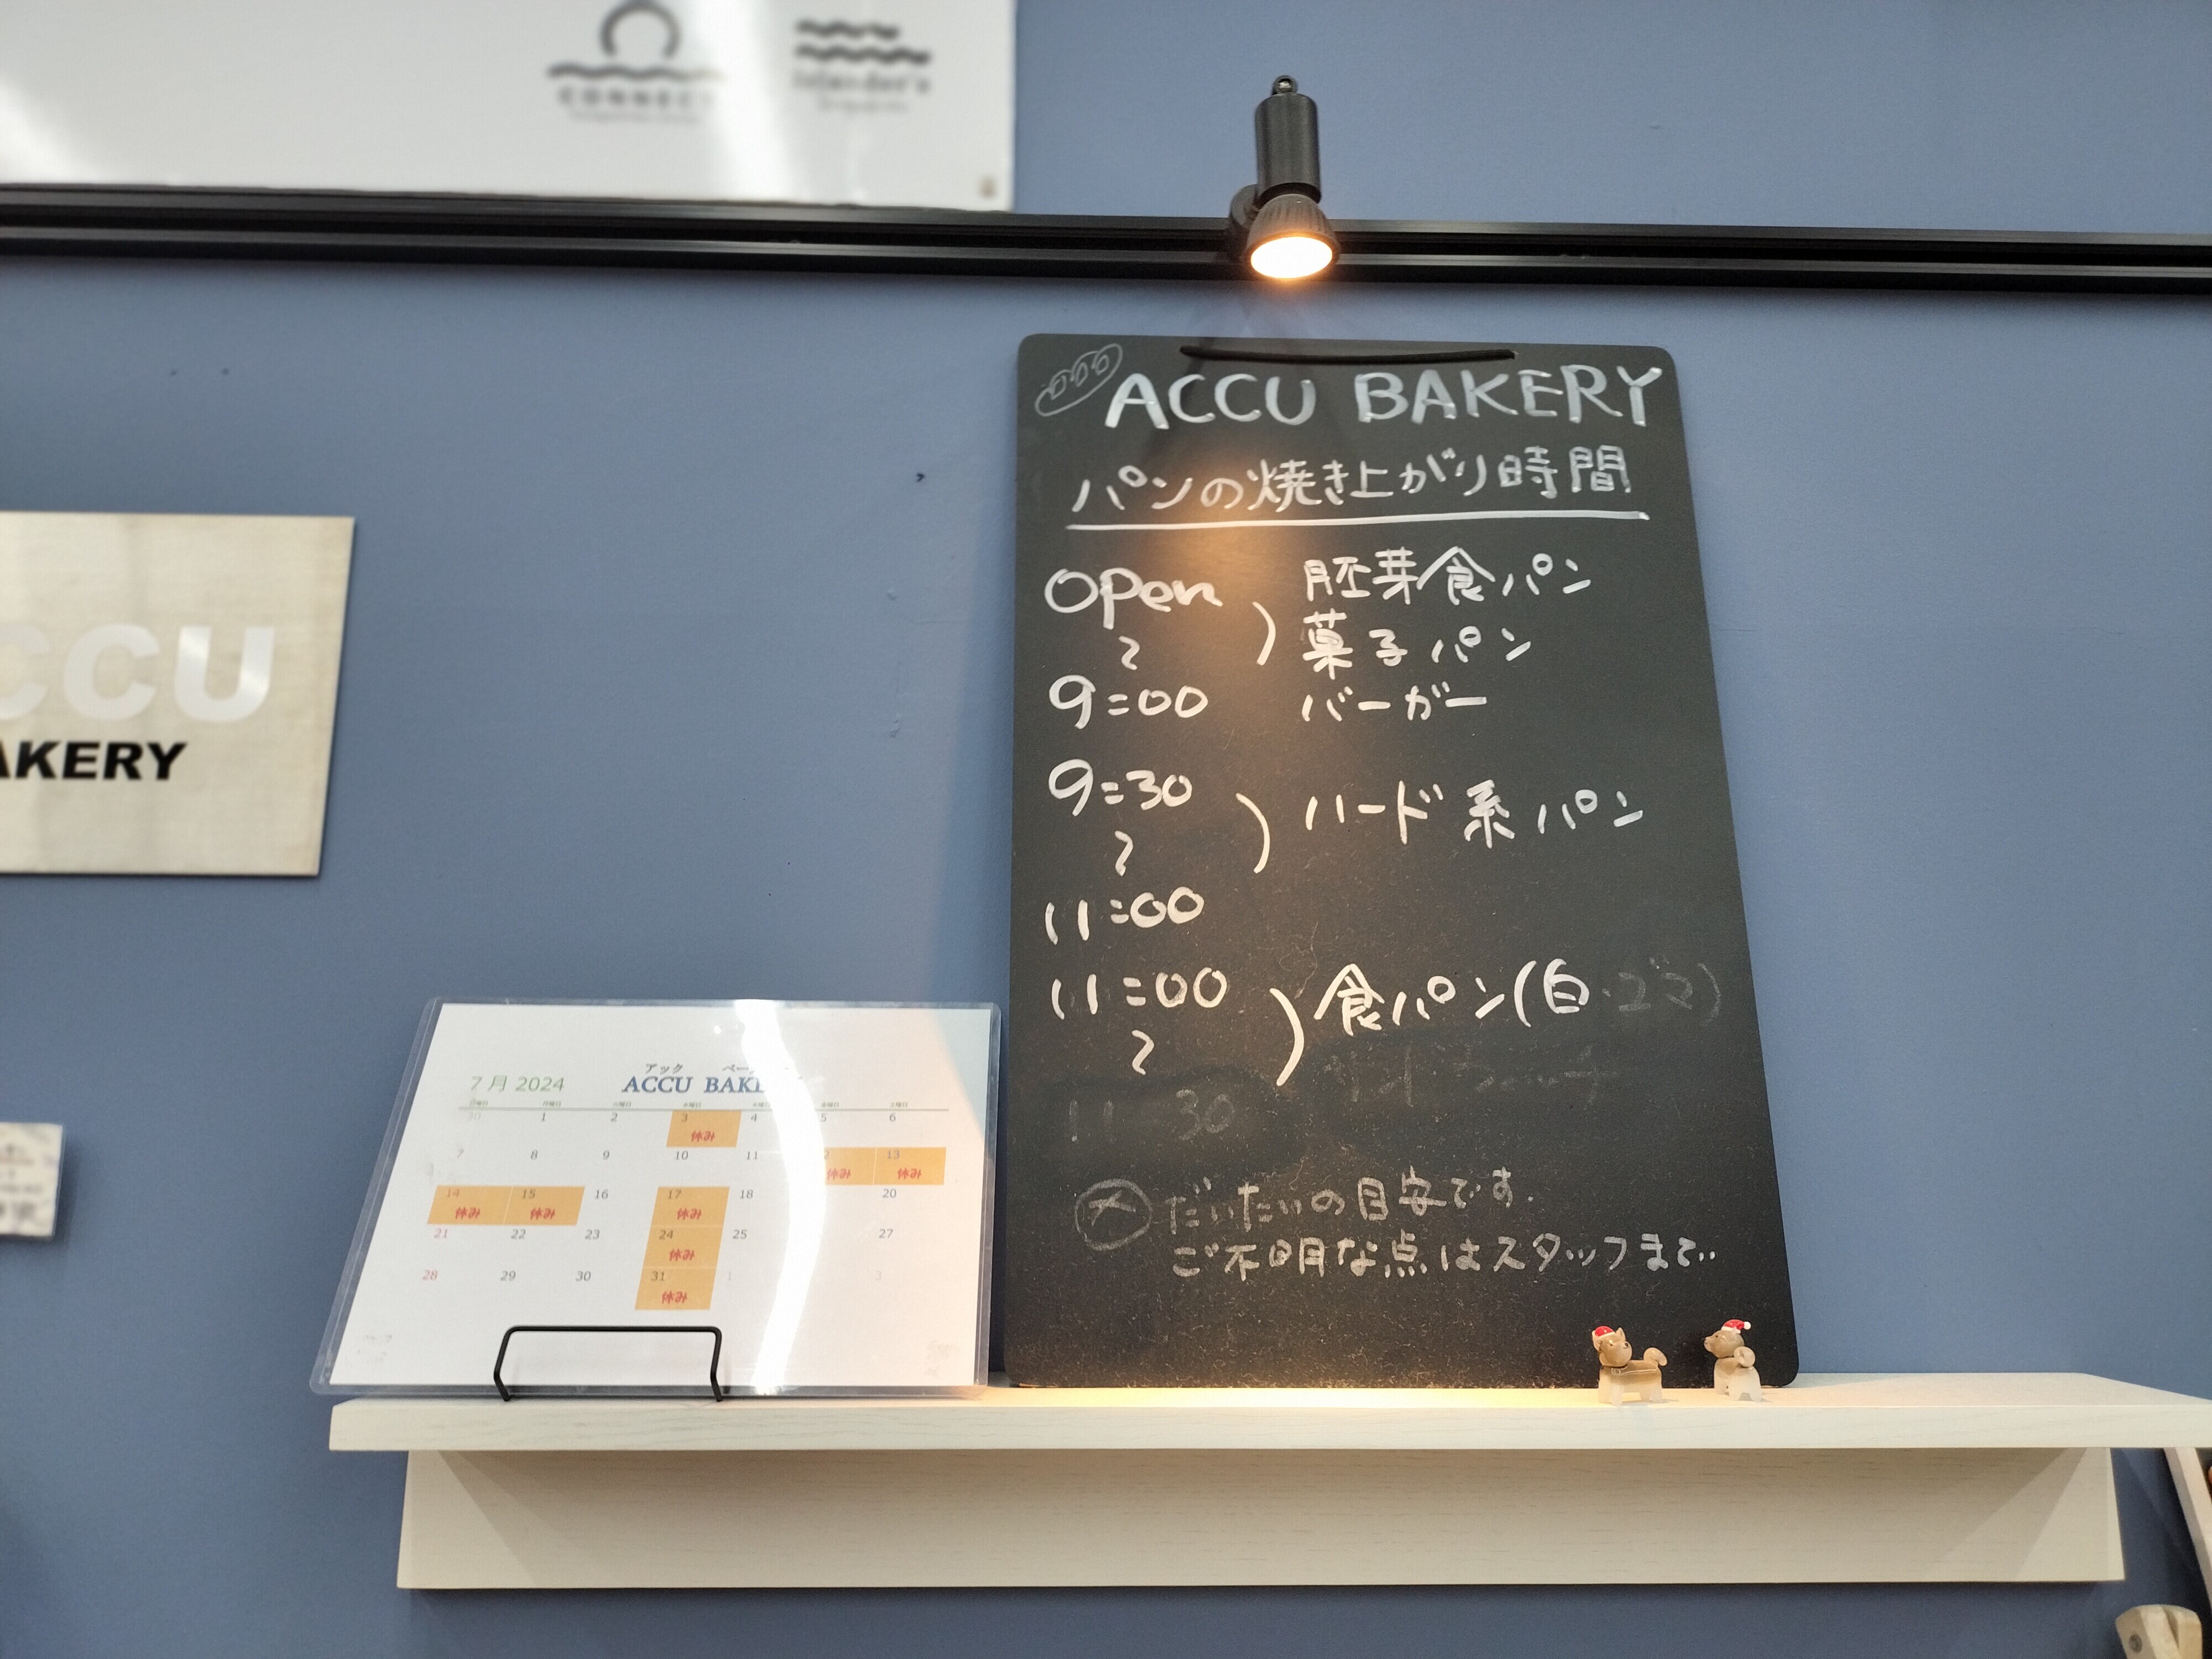 CONNECT
islander's
CCU
AKERY
ACCU BAKERY
パンの焼き上がり時間
open 胚芽食パン
〜 菓子パン
9:00 バーガー
9:30
〜 ハード系パン
11:00
11:00 食パン(白・ゴマ)
〜
11 30
だいたいの目安です.
ご不明な点はスタッフまで..
アック
7月 2024 ACCU BAKE
日曜日 月曜日 火曜日 水曜日 土曜日
30 1 2 3 4 5 6
休み
7 8 9 10 11 2 13
休み 休み
14 15 16 17 18 20
休み 休み 休み
21 22 23 24 25 27
休み
28 29 30 31 1 3
休み